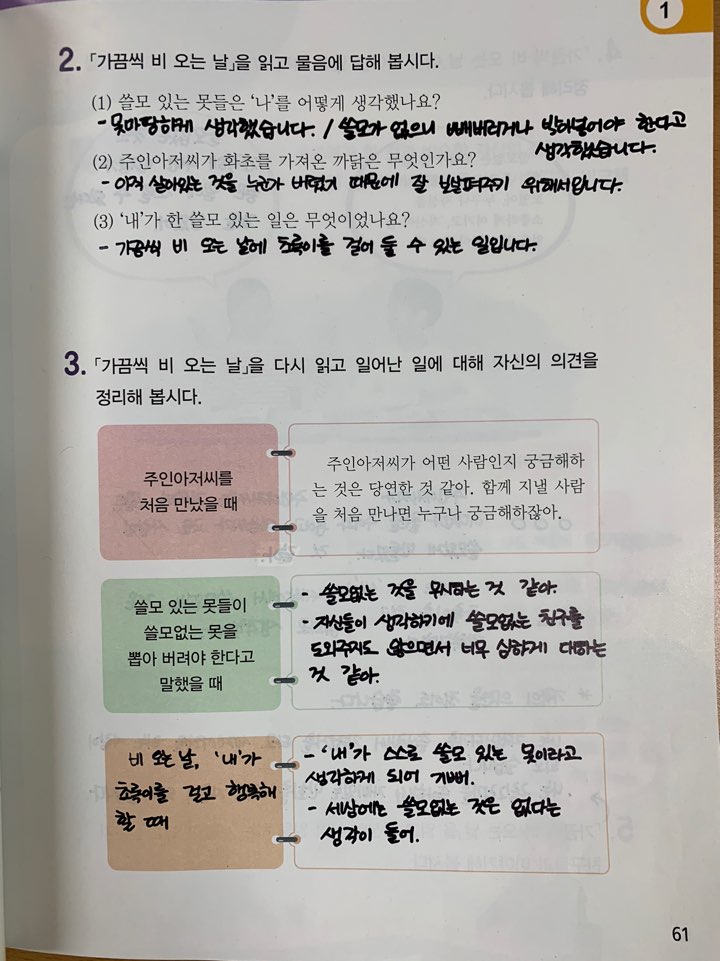 1
2. 「가끔씩 비 오는 날」을 읽고 물음에 답해 봅시다.
(1) 쓸모 있는 못들은 '나'를 어떻게 생각했나요?
- 못마땅하게 생각했습니다. / 쓸모가 없으니 빼버리거나 박아넣어야 한다고
생각했습니다.
(2) 주인아저씨가 화초를 가져온 까닭은 무엇인가요?
- 아직 살아있는 것을 누가 버렸기 때문에 잘 보살펴주기 위해서입니다.
(3) '내'가 한 쓸모 있는 일은 무엇이었나요?
- 가끔씩 비 오는 날에 초록이를 걸어 둘 수 있는 일입니다.
3. 「가끔씩 비 오는 날」을 다시 읽고 일어난 일에 대해 자신의 의견을
정리해 봅시다.
주인아저씨를
처음 만났을 때
주인아저씨가 어떤 사람인지 궁금해하
는 것은 당연한 것 같아. 함께 지낼 사람
을 처음 만나면 누구나 궁금해하잖아.
쓸모 있는 못들이
쓸모없는 못을
뽑아 버려야 한다고
말했을 때
- 쓸모없는 것을 무시하는 것 같아.
- 자신들이 생각하기에 쓸모없는 친구를
도와주지도 않으면서 너무 심하게 대하는
것 같아.
비 오는 날, '내'가
초록이를 걸고 행복해
할 때
- '내'가 스스로 쓸모 있는 못이라고
생각하게 되어 기뻐.
- 세상에는 쓸모없는 것은 없다는
생각이 들어.
61